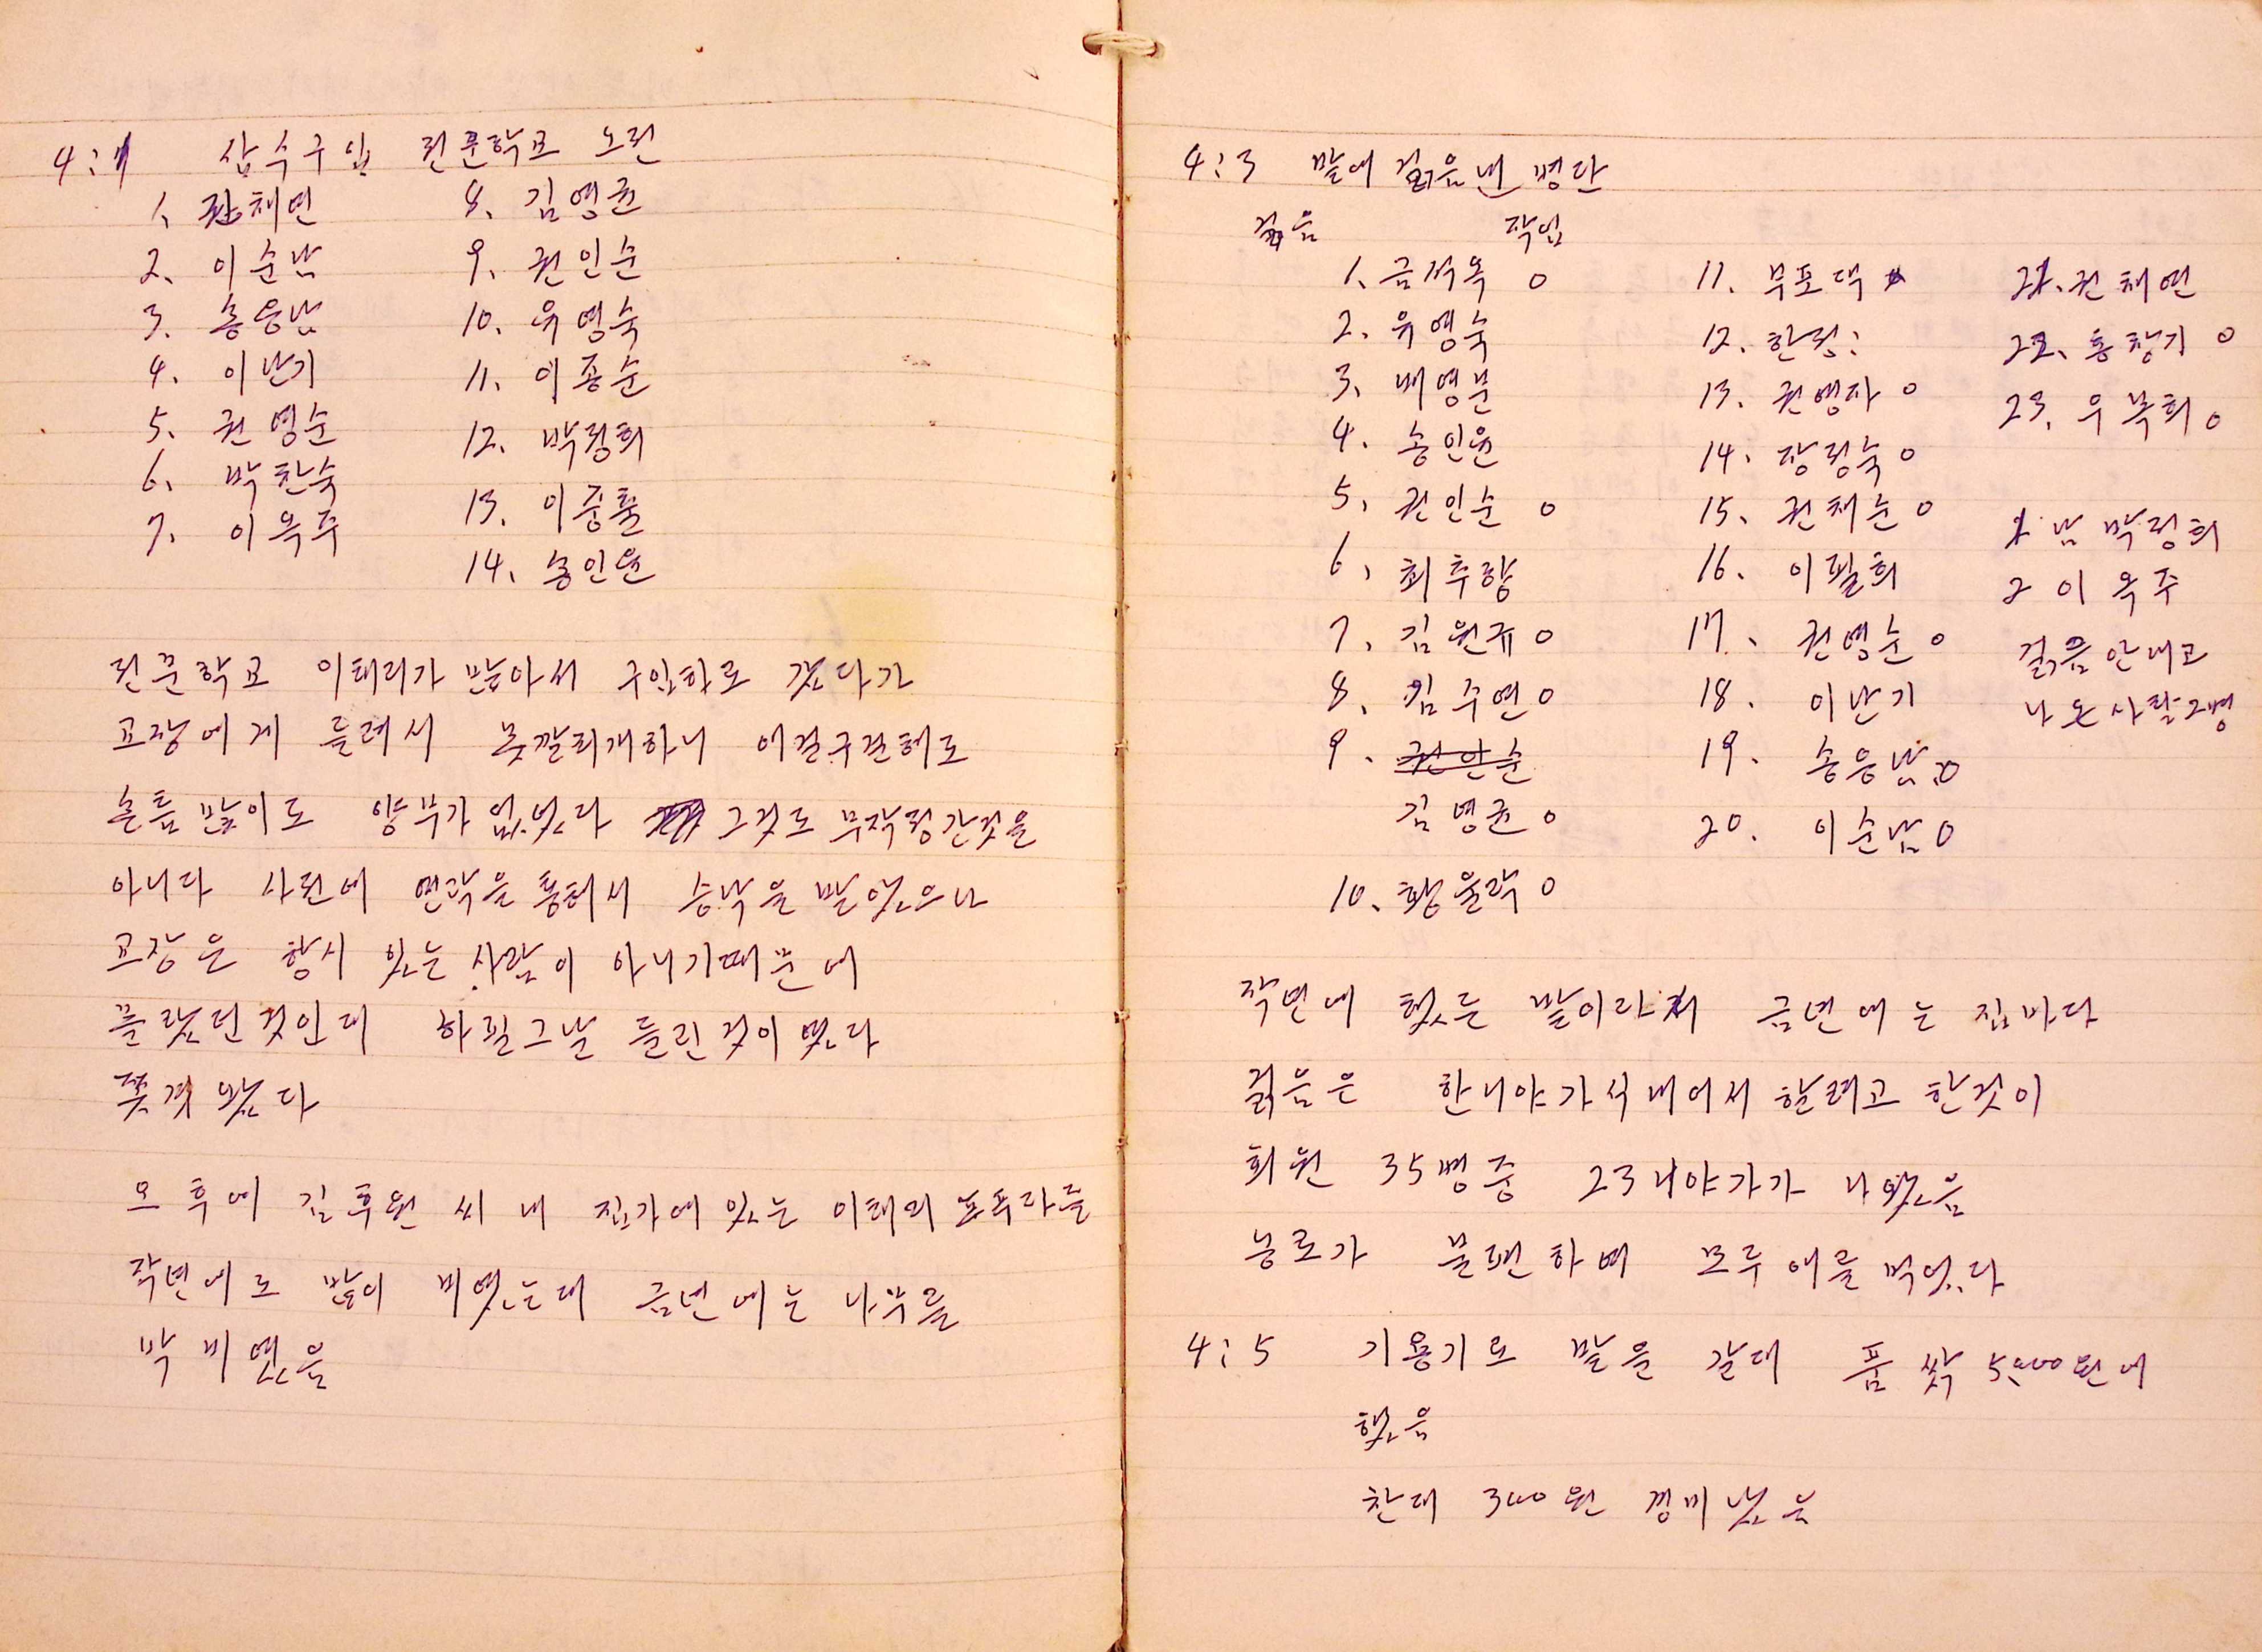 4:1 삽수구입 전문학교 노전
1. 권채연
2. 이순남
3. 송응남
4. 이난기
5. 권영순
6. 박찬숙
7. 이옥주
8. 김영균
9. 권인순
10. 유영숙
11. 이종순
12. 박정희
13. 이중훈
14. 송인윤
전문학교 이태리가 많아서 구입하로 갔다가
교장에게 들려서 못깔리개하니 이걸구걸해도
손톱많이도 양부가 없었다 그것도 무작정간것을
아니다 사전에 연락을 통해서 승낙을 말았으나
교장은 항시 있는 사람이 아니기때문에
믈랐던것인데 하필그날 들린것이였다
쫓겨왔다
오후에 김후원 씨 내 집가에 있는 이태리 뽀푸라를
작년에도 많이 비였는데 금년에는 나무를
박 비였음
4:3 말에 걹음낸 명단
걹음 작업
1. 금석옥 o
2. 유영숙
3. 배영분
4. 송인윤
5. 권인순 o
6. 최추량
7. 김원규 o
8. 김수연 o
9. 권인순
김영균 o
10. 황윤락 o
11. 무포댁
12. 한정:
13. 권영자 o
14. 장정숙 o
15. 권채순 o
16. 이필희
17. 권영순 o
18. 이난기
19. 송응남 o
20. 이순남 o
21. 권채연
22. 홍창기 o
23. 우복희 o
1 남 박정희
2 이옥주
걹음안내고
나온사람2명
작년에 했든 말이라서 금년에는 집마다
걹음은 한니야가식내어서 할려고 한것이
회원 35명중 23니야가가 나왔음
농로가 불편하여 모두 애를먹었다
4:5 기용기로 말을 갈대 품싻 5,000원에
했음
찬대 300원 경비났음